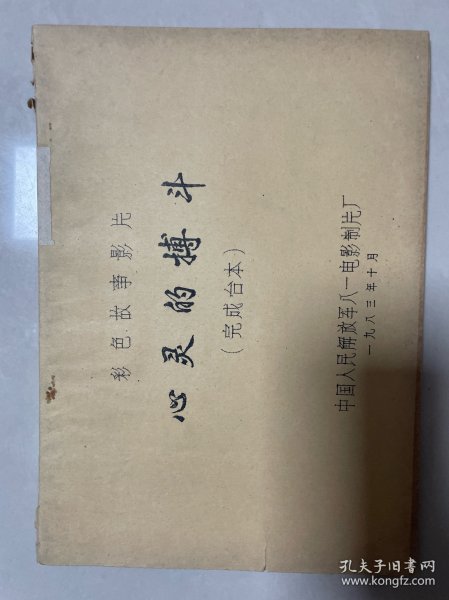 彩色故事影片
心灵的搏斗
（完成台本）
中国人民解放军八一电影制片厂
一九八三年十月
孔夫子旧书网
www.kongfz.com